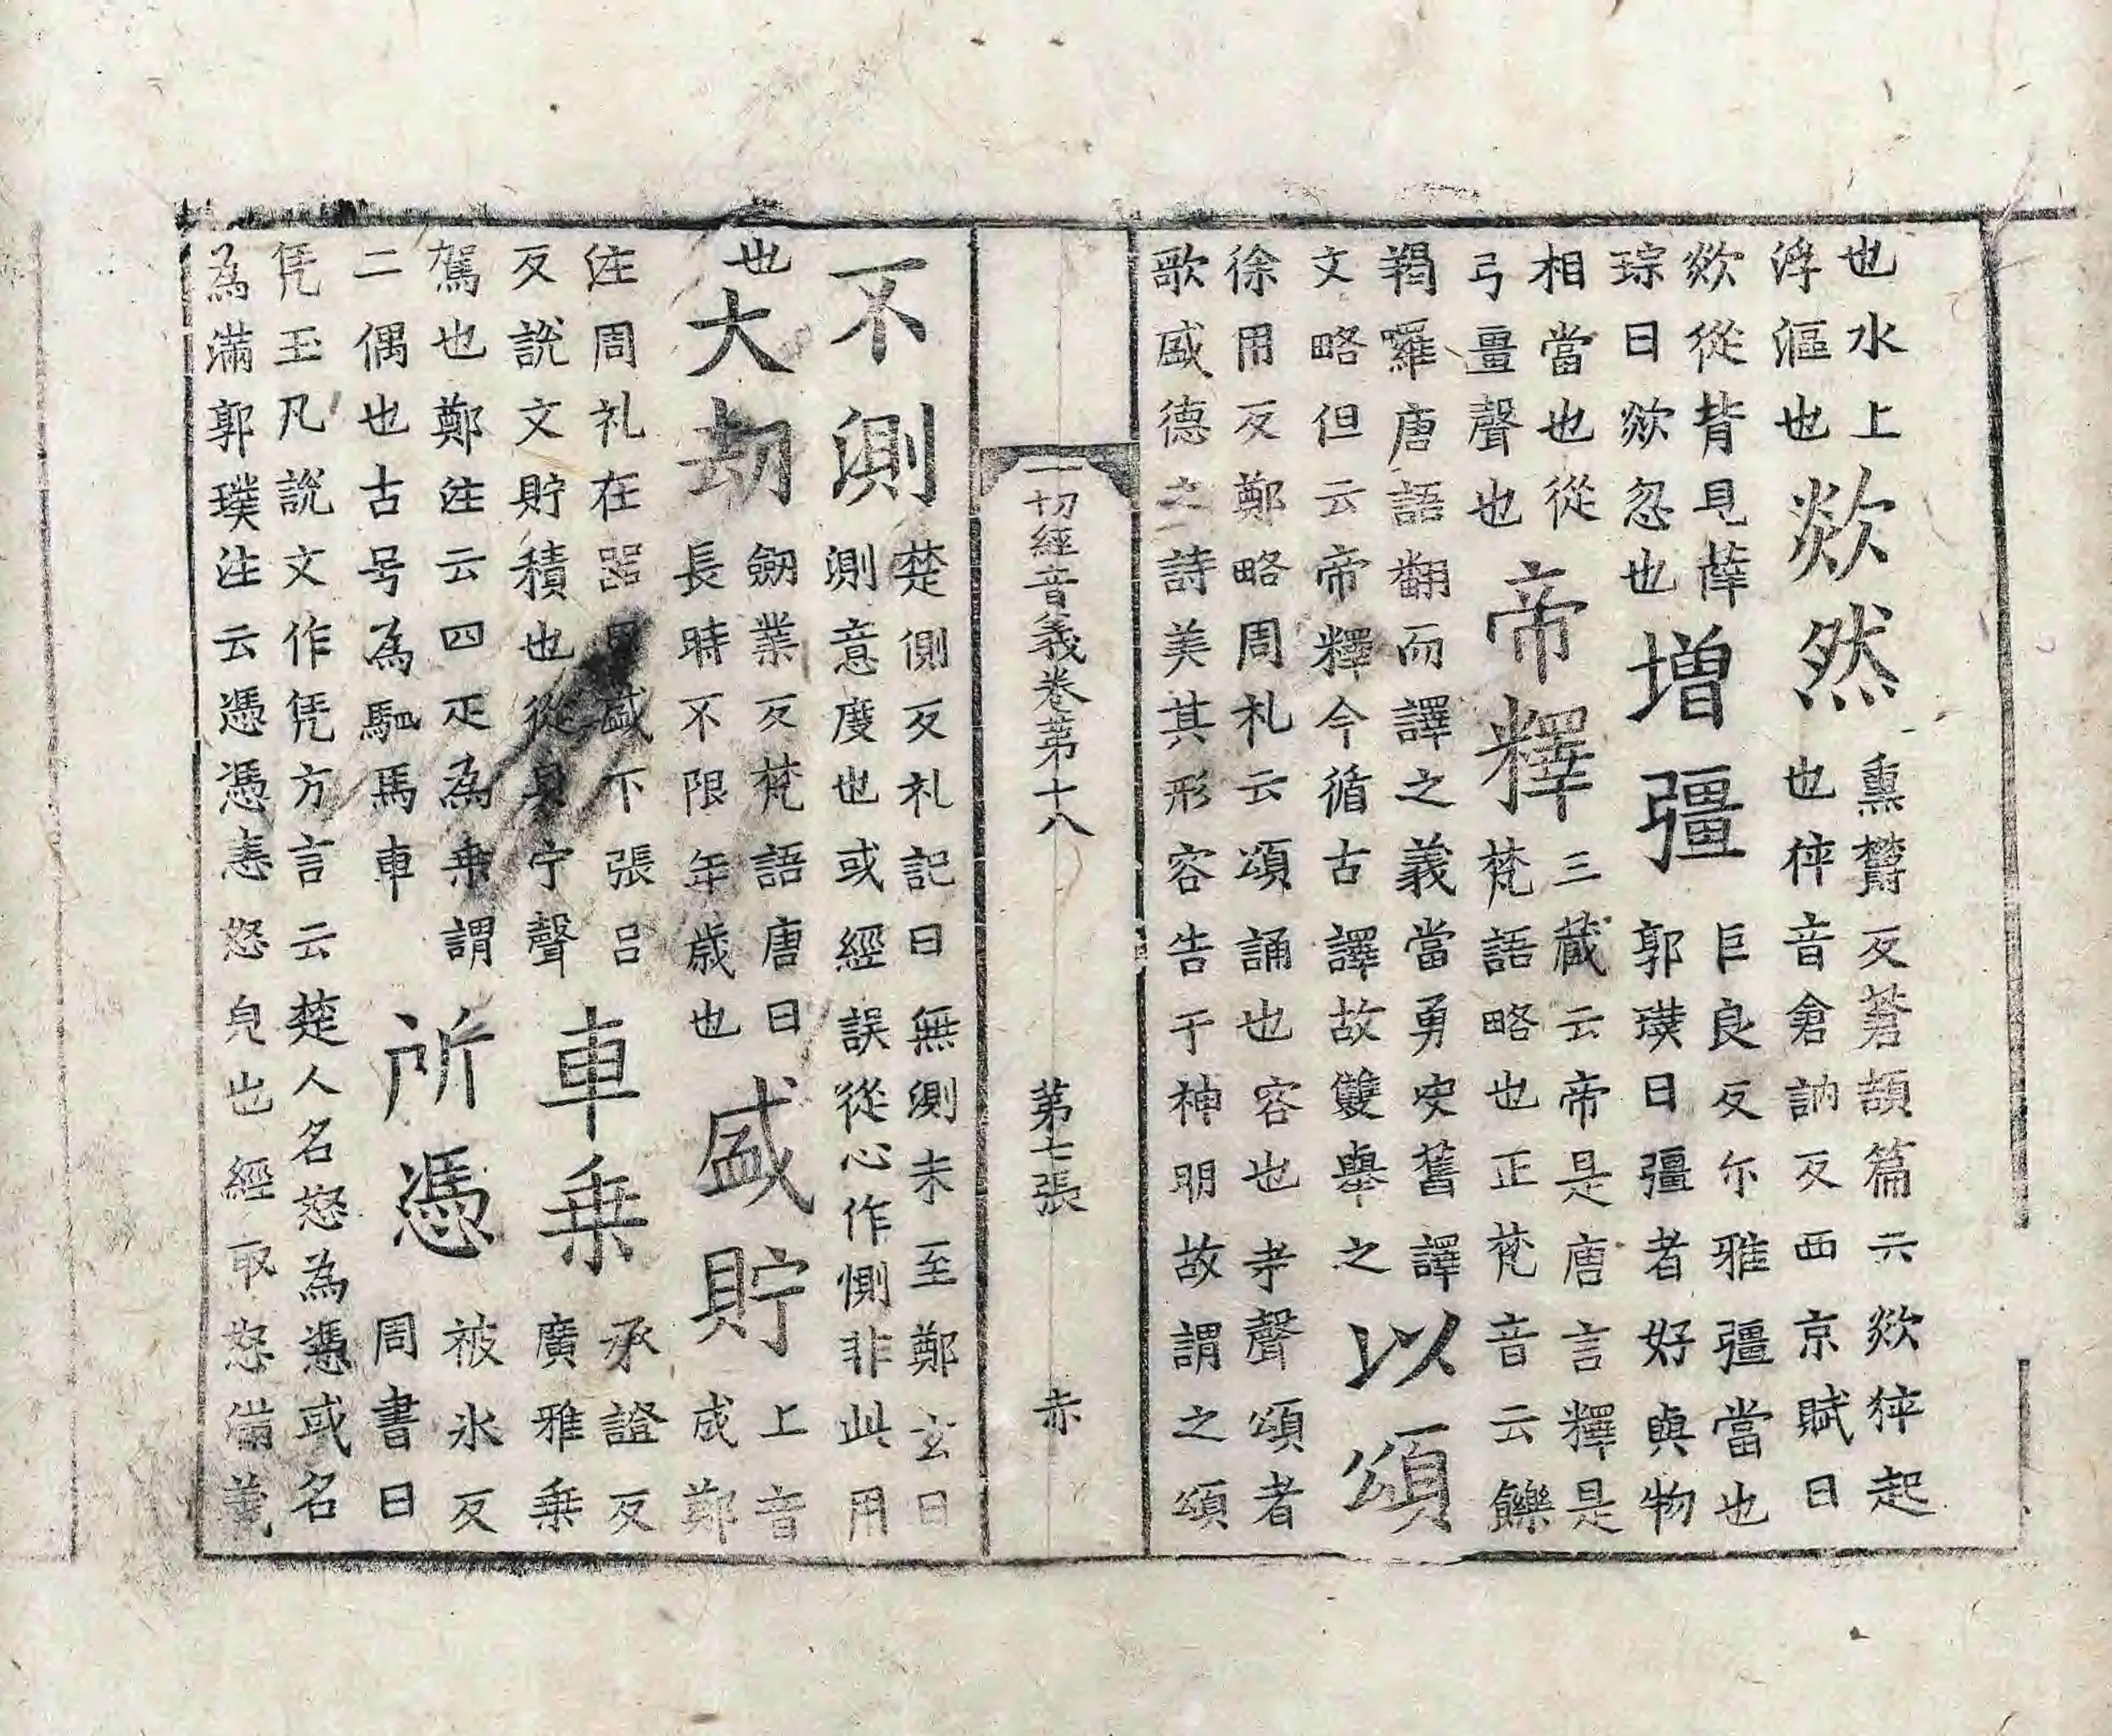 也水上
浮漚也
欻然
熏欝反蒼頡篇云欻猝起
也猝音倉訥反西京賦曰
欻從背見薛
琮曰欻忽也
增疆
巨良反尒雅疆當也
郭璞曰疆者好與物
相當也從
弓畺聲也
帝釋
三藏云帝是唐言釋是
梵語略也正梵音云鑠
羯囉唐語翻而譯之義當勇決舊譯
文略但云帝釋今循古譯故雙舉之
以頌
徐用反鄭略周礼云頌誦也容也寺聲頌者
歌盛德之詩美其形容告于神明故謂之頌
一切經音義卷第十八 第七張 赤
不測
楚側反礼記曰無測未至鄭玄曰
測意度也或經誤從心作惻非此用
也
大劫
劒業反梵語唐曰
長時不限年歳也
盛貯
上音
成鄭
注周礼在器曰盛下張呂
反說文貯積也從貝宁聲
車乗
承證反
廣雅乗
駕也鄭注云四疋為乗謂
二偶也古号為駟馬車
所憑
被氷反
周書曰
凭玉凡說文作凭方言云楚人名怒為憑或名
為滿郭璞注云憑憑恚怒皃也經取怒滿義